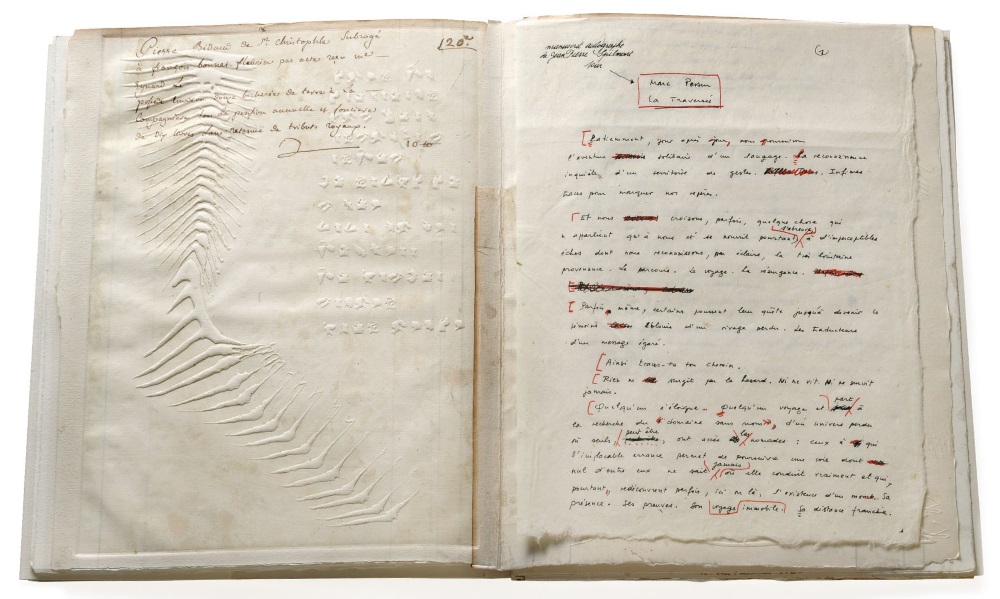 Pierre de St christophe Subrogé
120e
à françois bonnet par acte reçu me
annuelle et fonciere
de dix livres
manuscrit autographe
de Jean Pierre
sur
G
Marc Pessin
La Traversée
Patiemment, jour après jour, nous poursuivons
l'aventure solidaire d'un langage. La reconnaissance
inquiète d'un territoire de gestes. Infimes
traces pour marquer nos repères.
Et nous croisons, parfois, quelque chose qui
n'appartient qu'à nous et se nourrit pourtant à d'imperceptibles
échos dont nous reconnaissons, par éclairs, la très lointaine
provenance. Le parcours. Le voyage. La résurgence.
Parfois, même, certains poussent leur quête jusqu'à devenir les
témoins d'un rivage perdu. Les traducteurs
d'un message égaré.
Ainsi traces-tu ton chemin.
Rien ne surgit par le hasard. Ni ne vit. Ni ne survit
jamais.
Quelqu'un s'éloigne. Quelqu'un voyage et part à
la recherche du "domaine sans nom", d'un univers perdu
où seuls, peut être, ont accès les nomades : ceux à qui
l'implacable errance permet de poursuivre une voie dont
nul d'entre eux ne sait jamais où elle conduit vraiment et qui,
pourtant, redécouvrent parfois, ici ou là, l'existence d'un monde. Sa
présence. Ses preuves. Son voyage immobile. Sa distance franchie.